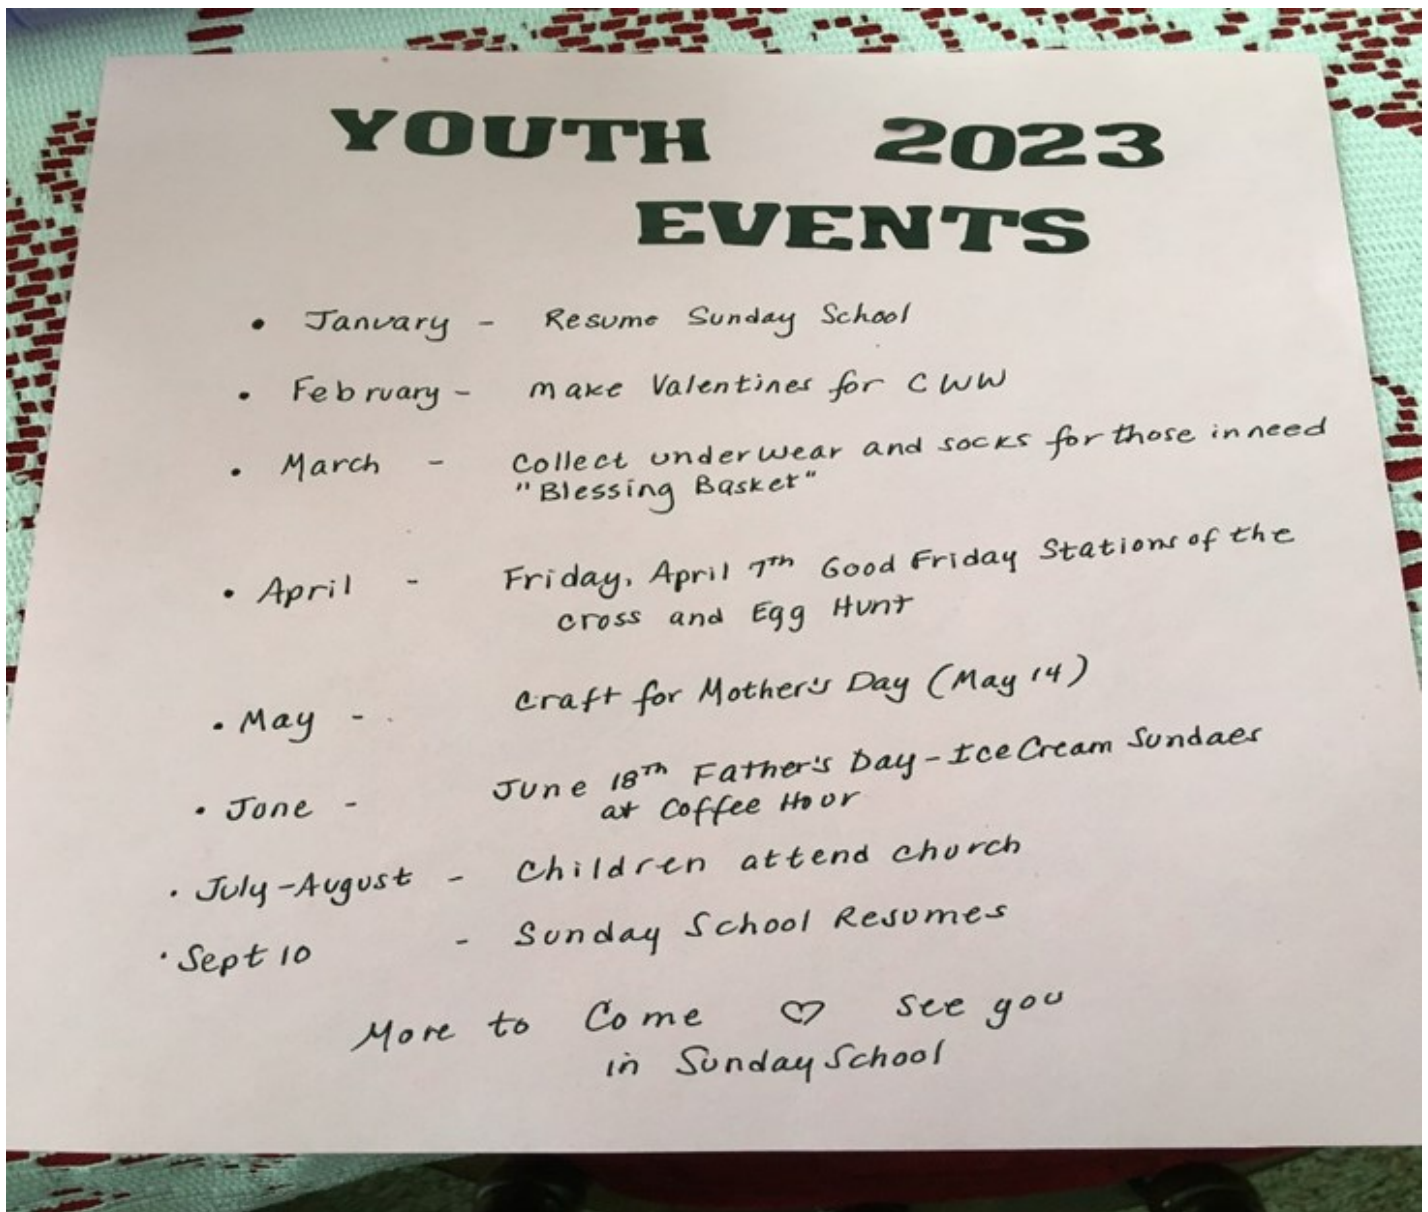 YOUTH 2023
EVENTS
• January - Resume Sunday School
• February - make Valentines for CWW
• March - Collect underwear and socks for those in need
"Blessing Basket"
• April - Friday, April 7th Good Friday Stations of the
cross and Egg Hunt
• May - Craft for Mother's Day (May 14)
• June - June 18th Father's Day - Ice Cream Sundaes
at Coffee Hour
• July - August - Children attend church
• Sept 10 - Sunday School Resumes
More to Come ♡ see you
in Sunday School